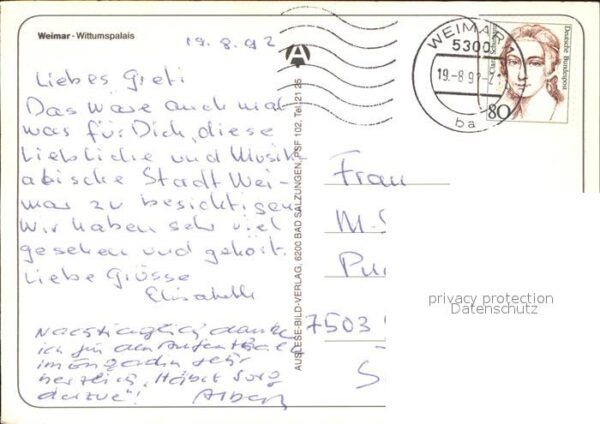 Weimar - Wittumspalais
19.8.92
Liebes Greti
Das wäre auch mal
was für Dich, diese
liebliche und Musik
alische Stadt Wei-
mar zu besichtigen
Wir haben sehr viel
gesehen und gehört.
Liebe Grüsse
Elisabeth
Nachträglich danke
ich für den Aufenthalt
im Engadin sehr
herzlich, "Häbet Sorg
derzue"! Albert
AUSLESE-BILD-VERLAG, 6200 BAD SALZUNGEN, PSF 102, Tel. 21 25
WEIMAR 1
5300
19.-8.92
ba
Deutsche Bundespost
80
Frau
M.
7503
privacy protection
Datenschutz